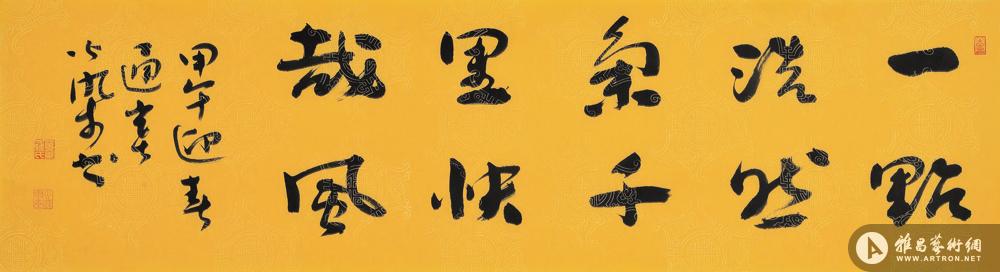 一點
浩然
氣千
里快
哉風
甲午迎春
通
書
雅昌藝術網
WWW.ARTRON.NET